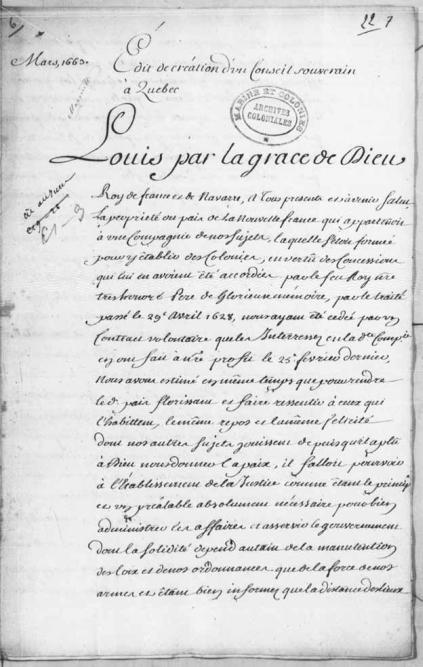 6
22 7
Mars, 1663.
Édit de création d'vn Conseil souverain
à Quebec
MARINE ET COLONIES
ARCHIVES
COLONIALES
Louis par la grace de Dieu
Roy de france et de Navarre, A tous presents et a venir Salut
La propriété du païs de la Nouvelle france qui appartenoit
à vne Compagnie de nos Sujets, laquelle s'étoit formée
pour y établir des Colonies, en vertu des Concessions
qui lui en avoient été accordées par le feu Roy nre
tres honoré Pere de Glorieuse mémoire, par le traité
passé le 29e Avril 1628, nous ayant été cédée par vn
Contract volontaire que les Interressez en la de Compie
en ont fait à nre profit le 25e fevrier dernier,
Nous avons estimé en même temps que pour rendre
le d. païs florissant et faire ressentir à ceux qui
l'habittent, le même repos et la même felicité
dont nos autres Sujets jouissent depuis qu'il a plû
à Dieu nous donner la paix, il falloit pourvoir
à l'Etablissement de la Justice comme étant le principe
et vn préalable absolument nécessaire pour bien
administrer les affaires et asservir le gouvernement
dont la solidité depend autant de la manutention
des loix et de nos ordonnances que de la force de nos
armes et étant bien informez que la distance des lieux